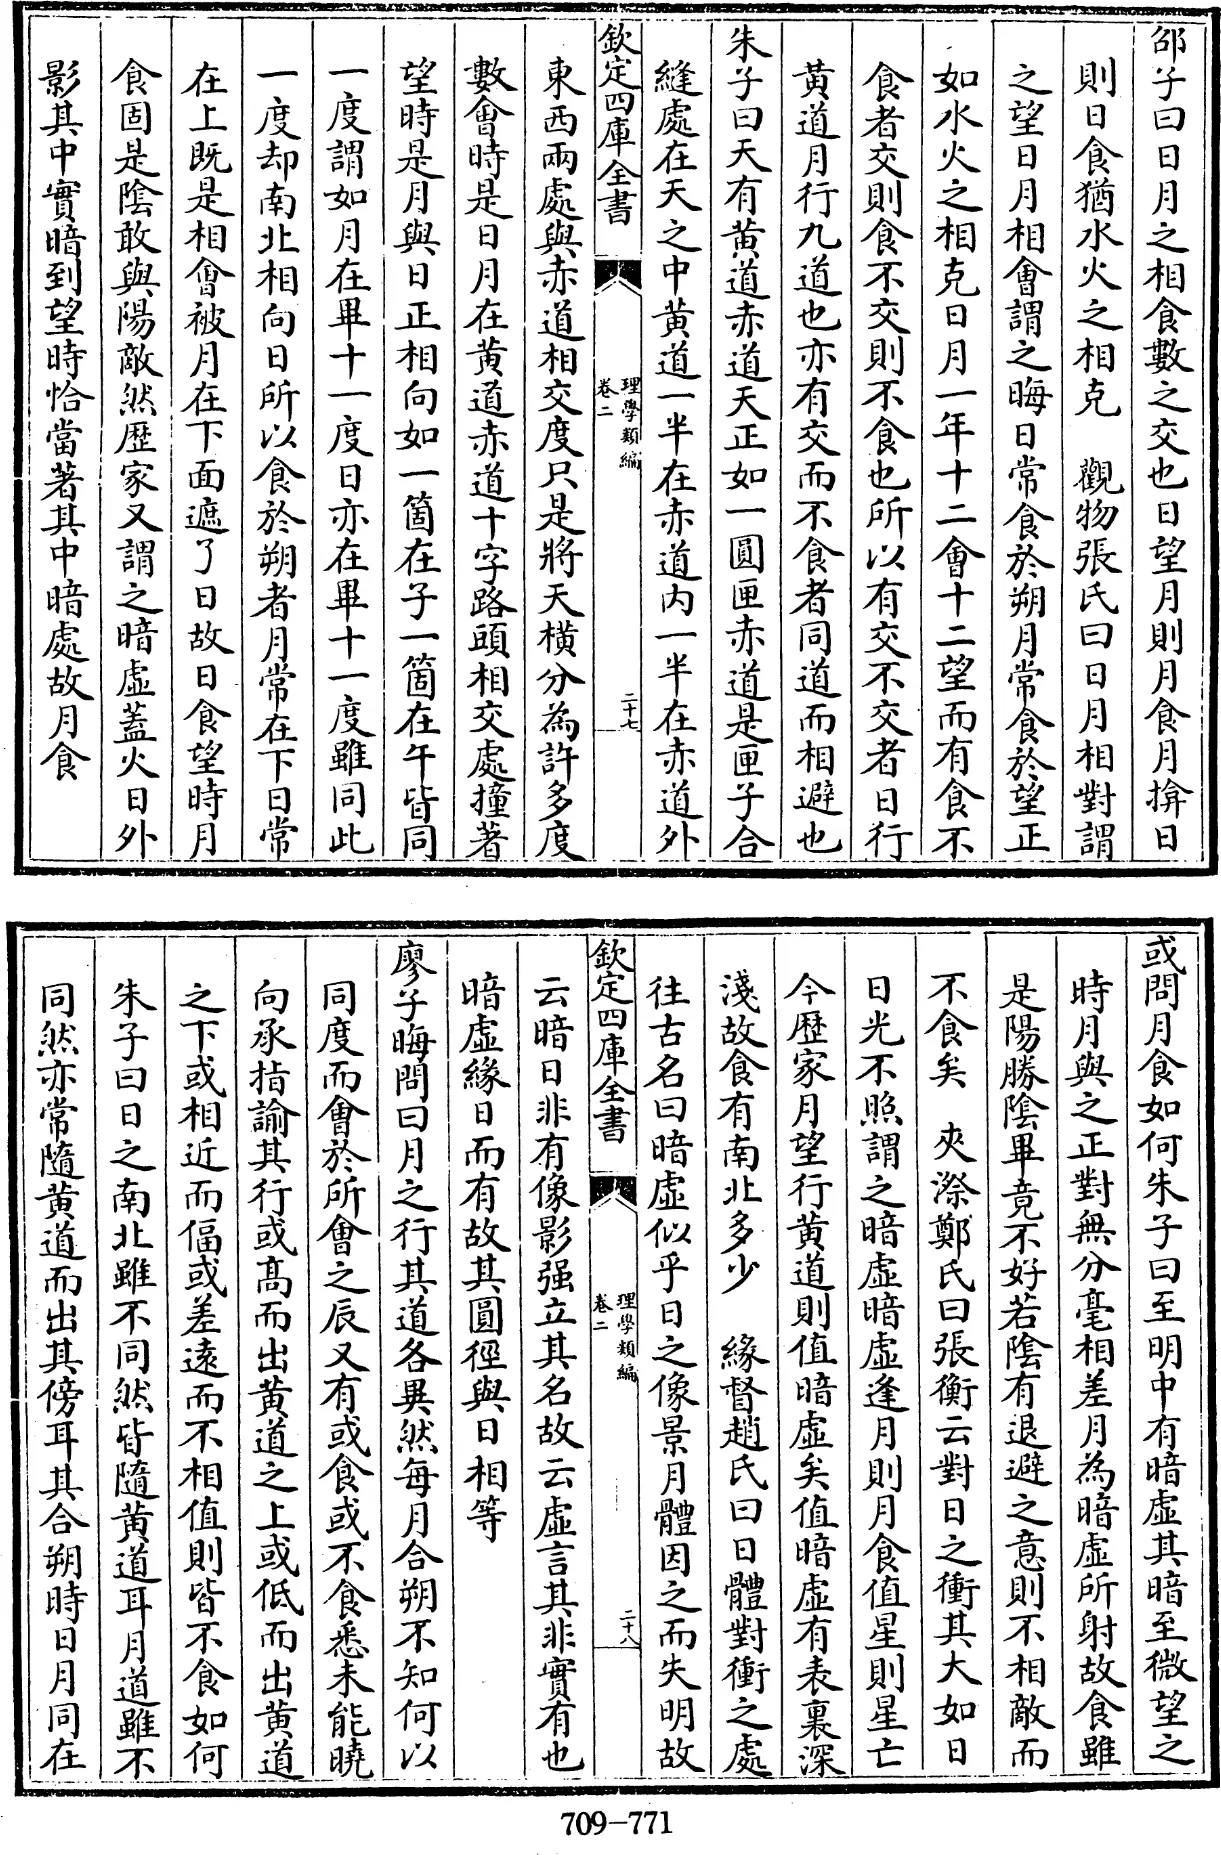 邵子曰日月之相食數之交也日望月則月食月揜日
則日食猶水火之相克　觀物張氏曰日月相對謂
之望日月相會謂之晦日常食於朔月常食於望正
如水火之相克日月一年十二會十二望而有食不
食者交則食不交則不食也所以有交不交者日行
黄道月行九道也亦有交而不食者同道而相避也
朱子曰天有黄道赤道天正如一圓匣赤道是匣子合
縫處在天之中黄道一半在赤道内一半在赤道外
欽定四庫全書
理學類編
卷二
二十七
東西兩處與赤道相交度只是將天横分為許多度
數會時是日月在黄道赤道十字路頭相交處撞著
望時是月與日正相向如一箇在子一箇在午皆同
一度謂如月在畢十一度日亦在畢十一度雖同此
一度却南北相向日所以食於朔者月常在下日常
在上既是相會被月在下面遮了日故日食望時月
食固是陰敢與陽敵然歷家又謂之暗虛蓋火日外
影其中實暗到望時恰當著其中暗處故月食
或問月食如何朱子曰至明中有暗虛其暗至微望之
時月與之正對無分毫相差月為暗虛所射故食雖
是陽勝陰畢竟不好若陰有退避之意則不相敵而
不食矣　夾漈鄭氏曰張衡云對日之衝其大如日
日光不照謂之暗虛暗虛逢月則月食值星則星亡
今歷家月望行黄道則值暗虛矣值暗虛有表裏深
淺故食有南北多少　緣督趙氏曰日體對衝之處
往古名曰暗虛似乎日之像景月體因之而失明故
欽定四庫全書
理學類編
卷二
二十八
云暗日非有像影强立其名故云虛言其非實有也
暗虛緣日而有故其圓徑與日相等
廖子晦問曰月之行其道各異然每月合朔不知何以
同度而會於所會之辰又有或食或不食悉未能曉
向承指諭其行或髙而出黄道之上或低而出黄道
之下或相近而偪或差遠而不相值則皆不食如何
朱子曰日之南北雖不同然皆隨黄道耳月道雖不
同然亦常隨黄道而出其傍耳其合朔時日月同在
709-771